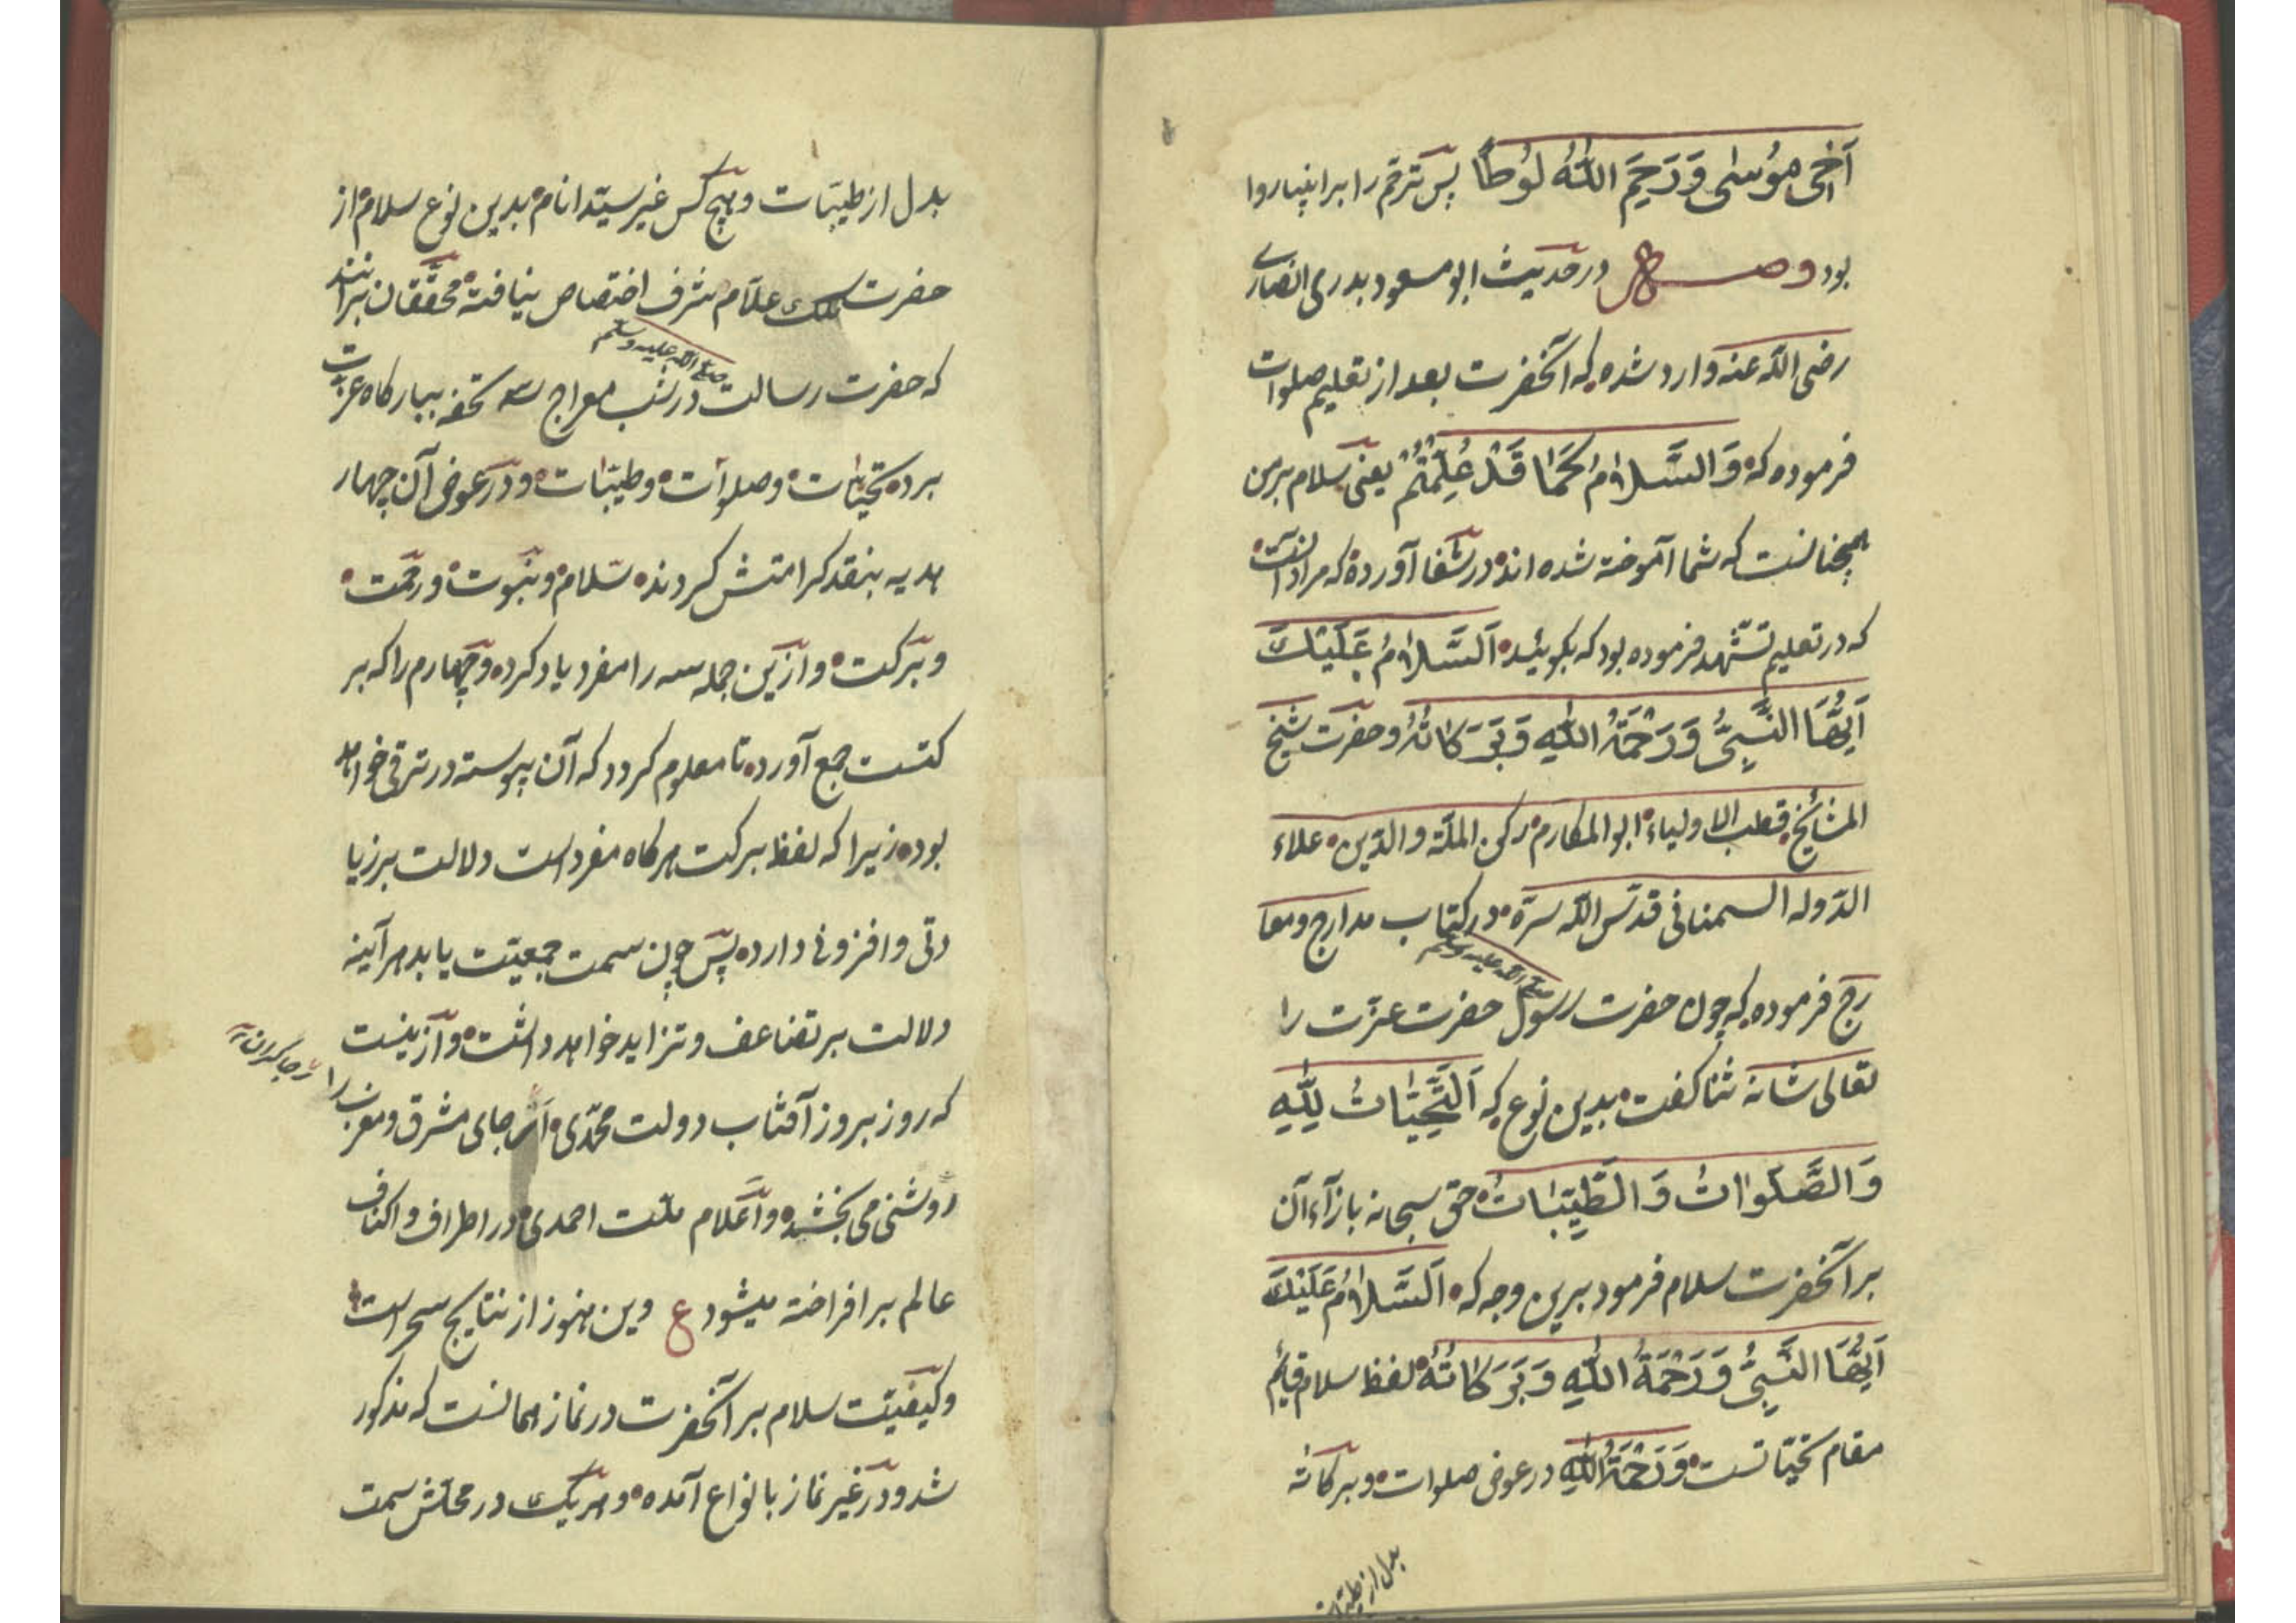 اَخِی مُوسٰی وَرَحِمَ اللّٰهُ لُوطًا پس ترحّم را بر انبیا روا
بود وصل در حدیث ابو مسعود بدری انصاری
رضی اللّه عنه وارد شده که آنحضرت بعد از تعلیم صلوات
فرموده که وَالسَّلَامُ کَمَا قَدْ عُلِّمْتُمْ یعنی سلام بر من
همچنانست که شما آموخته شده اند در شفا آورده که مراد آنست
که در تعلیم تشهّد فرموده بود که بکوئید اَلسَّلَامُ عَلَیْكَ
اَیُّهَا النَّبِیُّ وَرَحْمَةُ اللّٰهِ وَبَرَکَاتُهُ وحضرت شیخ
المشائخ قطب الاولیاء ابو المکارم رکن الملّة والدّین علاء
الدّوله السمنانی قدّس اللّه سرّه در کتاب مدارج ومعا
رج فرموده که چون حضرت رسول صلی اللّه علیه وسلم حضرت عزّت را
تعالی شانه ثنا کفت بدین نوع که اَلتَّحِیَّاتُ لِلّٰهِ
وَالصَّلَوَاتُ وَالطَّیِّبَاتُ حق سبحانه بازآء آن
بر آنحضرت سلام فرمود برین وجه که اَلسَّلَامُ عَلَیْكَ
اَیُّهَا النَّبِیُّ وَرَحْمَةُ اللّٰهِ وَبَرَکَاتُهُ لفظ سلام قایم
مقام تحیّاتست وَرَحْمَةُ اللّٰهِ در عوض صلوات وبرکاته
بدل از طیّبات
بدل از طیّبات وهیچ کس غیر سیّد انام بدین نوع سلام از
حضرت ملك علّام شرف اختصاص نیافته محقّقان برانند
که حضرت رسالت صلی اللّه علیه وسلم در شب معراج سه تحفه ببارکاه عزّت
برده تحیّات وصلوات وطیّبات ودر عوض آن چهار
هدیه بنقد کرامتش کردند سّلام ونبّوت ورحمّت
وبرّکت وازین جمله سه را مفرد یاد کرده وچهارم را که بر
کتست جمع آورده تا معلوم کردد که آن پیوسته در ترقی خواهد
بود زیرا که لفظ برکت هرکاه مفرد است دلالت بر زیا
دتی وافزونی دارد پس چون سمت جمعیّت یابد هرآینه
دلالت بر تضاعف وتزاید خواهد داشت وازینست
که روز بروز آفتاب دولت محمّدی از جای مشرق ومغرب را
رجا کران
روشنی می بخشد واَعلام ملّت احمدی در اطراف واکناف
عالم بر افراخته میشود ع وین هنوز از نتایج سحر است
وکیفیّت سلام بر آنحضرت در نماز همانست که مذکور
شد ودر غیر نماز بانواع آمده وهریك در محلّش سمت